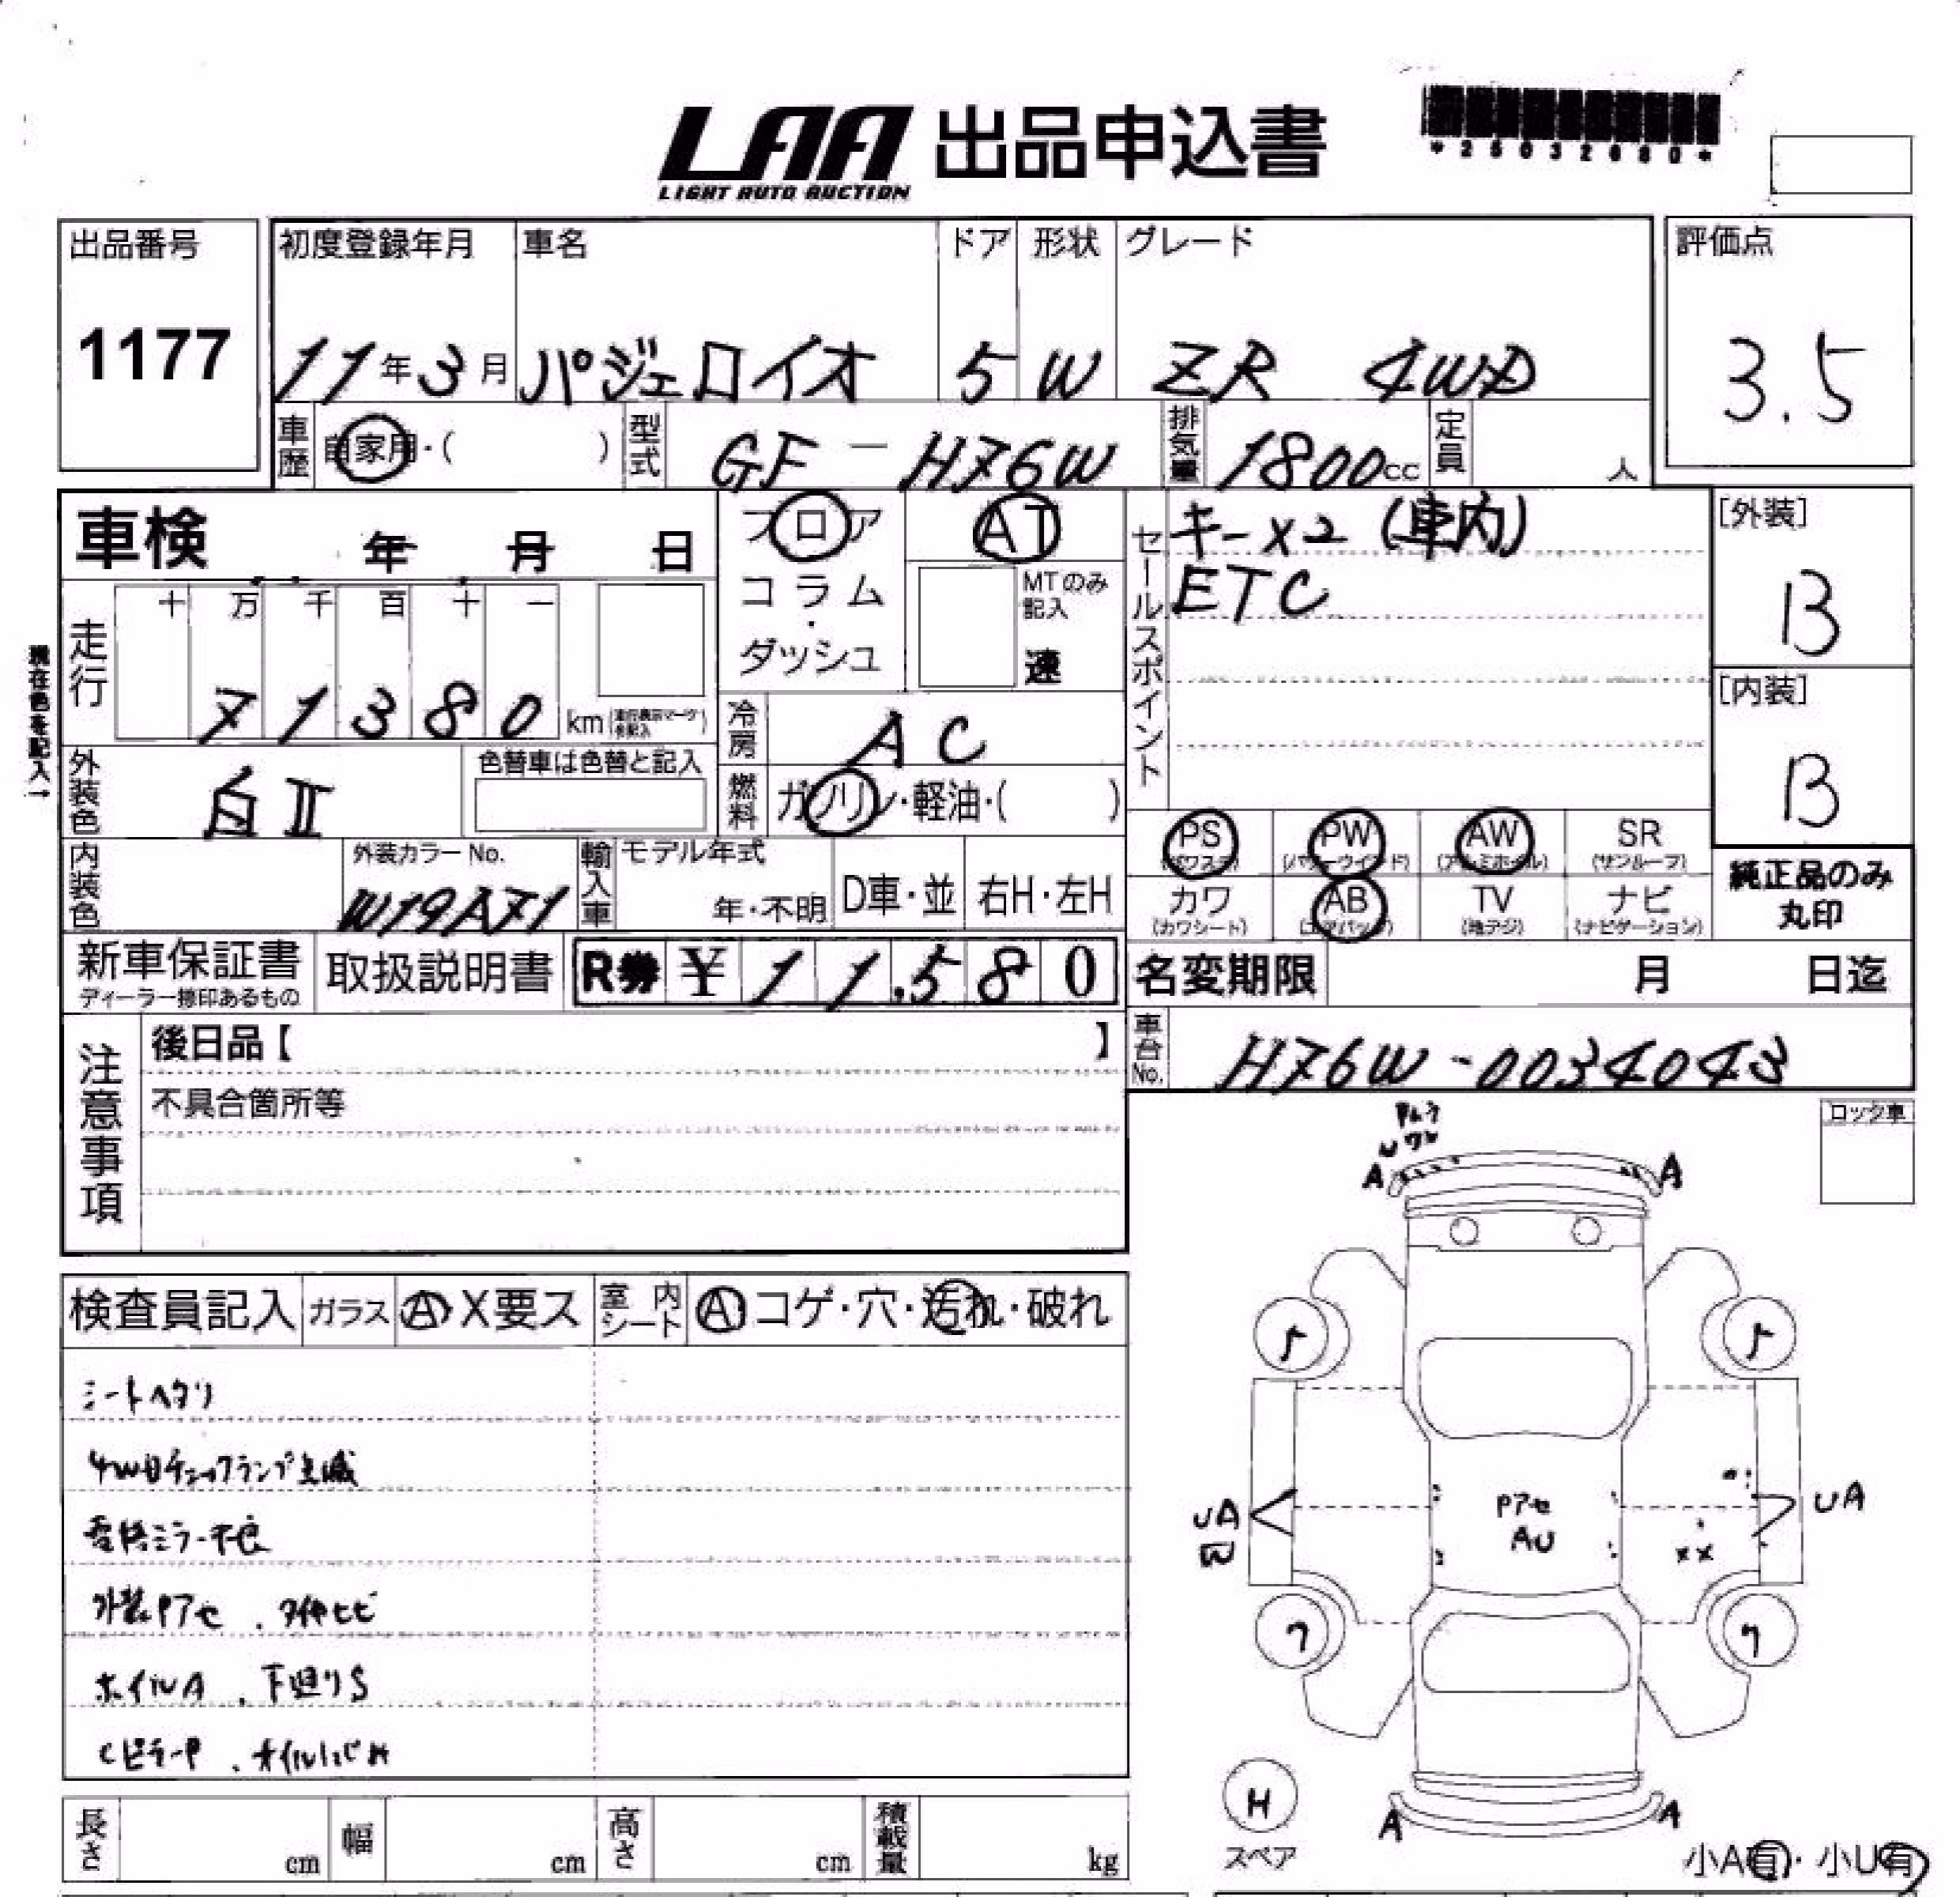 LAA 出品申込書
LIGHT AUTO AUCTION
出品番号
1177
初度登録年月 車名 ドア 形状 グレード
11年3月 パジェロイオ 5 W ZR 4WD
評価点
3.5
車歴 自家用・( ) 型式 GF-H76W 排気量 1800cc 定員 人
車検 年 月 日
フロア
コラム
・
ダッシュ
AT
MTのみ
記入
速
セールスポイント
キーx2 (車内)
ETC
[外装]
B
[内装]
B
現在色を記入→
走行
十 万 千 百 十 一
7 1 3 8 0 km
冷房 AC
外装色 白II
色替車は色替と記入
燃料 ガソリン・軽油・( )
PS PW AW SR
(パワステ) (パワーウインド) (アルミホイル) (サンルーフ)
カワ AB TV ナビ
(カワシート) (エアバッグ) (地デジ) (ナビゲーション)
純正品のみ
丸印
内装色
外装カラーNo.
W19A71
輸入車 モデル年式
年・不明 D車・並 右H・左H
新車保証書
ディーラー捺印あるもの
取扱説明書
R券 ¥ 11,580
名変期限 月 日迄
車台No. H76W-0034043
注意事項
後日品【 】
不具合箇所等
ロック車
A A
検査員記入 ガラス A X要ス 室内シート A コゲ・穴・汚れ・破れ
シートヘタリ
4WDチェックランプ点滅
電格ミラー不良
外装Pアセ . タイヤヒビ
ホイルA . 下廻りS
CピラーP . オイル
UA
Pアセ
AU
UA
XX
H
スペア
A A
小A有・小U有
長さ cm 幅 cm 高さ cm 積載量 kg